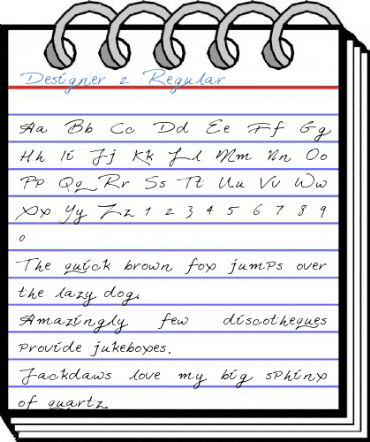 Designer 2 Regular
Aa Bb Cc Dd Ee Ff Gg
Hh Ii Jj Kk Ll Mm Nn Oo
Pp Qq Rr Ss Tt Uu Vv Ww
Xx Yy Zz 1 2 3 4 5 6 7 8 9
0
The quick brown fox jumps over
the lazy dog.
Amazingly few discotheques
provide jukeboxes.
Jackdaws love my big sphinx
of quartz.